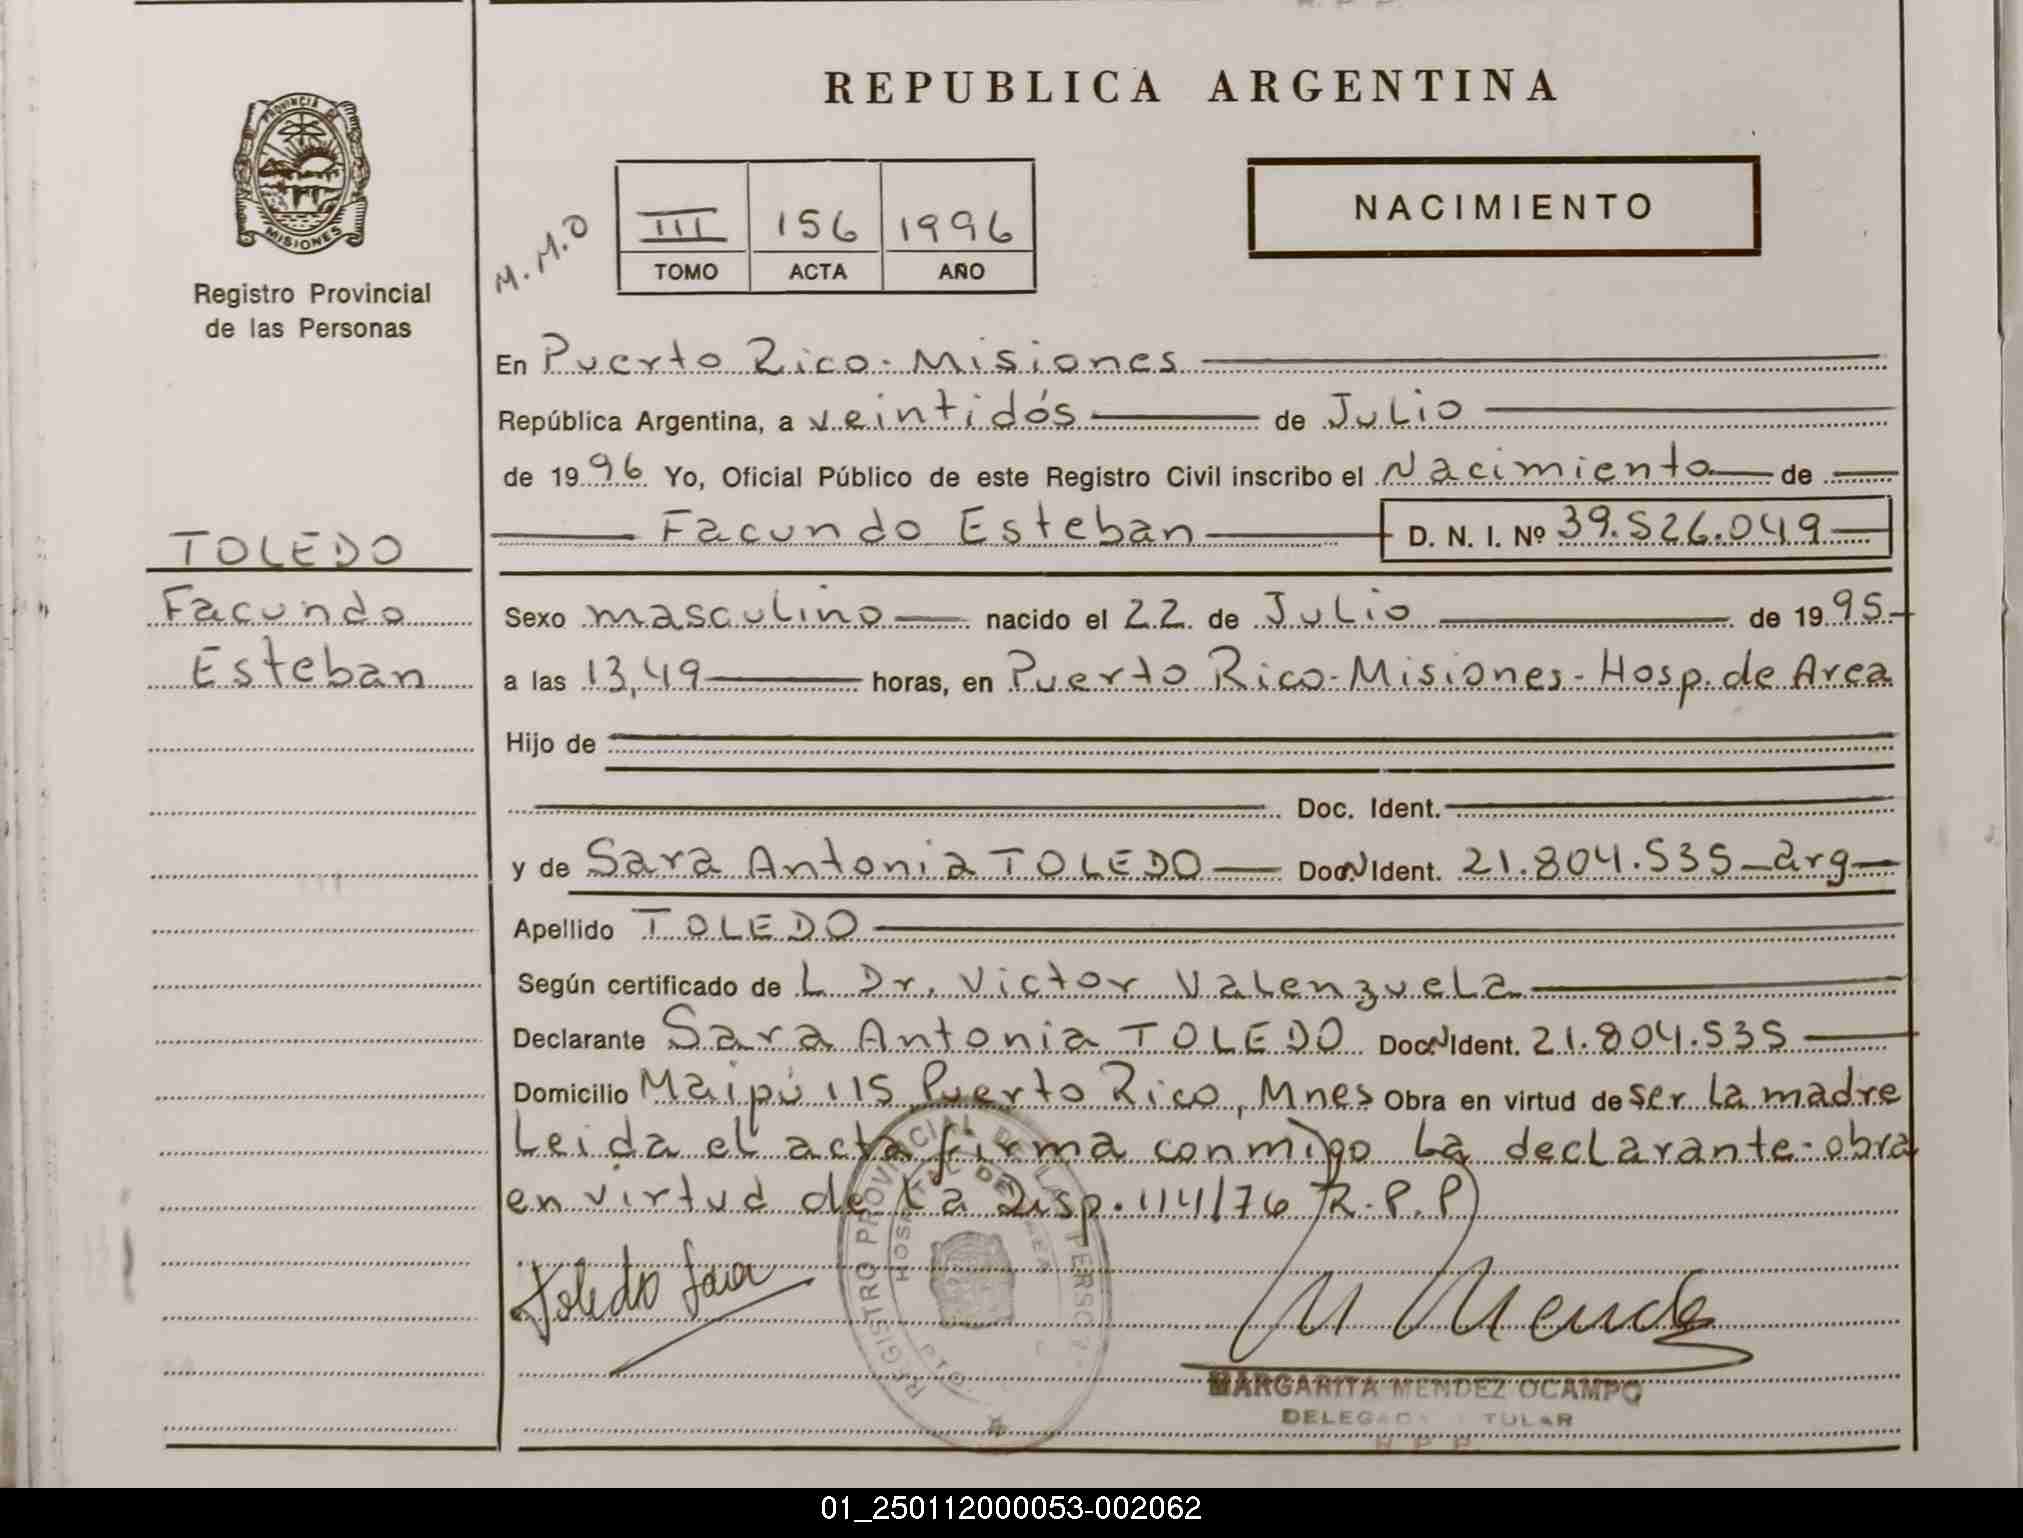 REPUBLICA ARGENTINA
PROVINCIA DE
MISIONES
Registro Provincial
de las Personas
M.M.O
III 156 1996
TOMO ACTA AÑO
NACIMIENTO
En Puerto Rico - Misiones
República Argentina, a veintidós de Julio
de 1996 Yo, Oficial Público de este Registro Civil inscribo el Nacimiento de
Facundo Esteban D. N. I. Nº 39.526.049
TOLEDO
Facundo
Esteban
Sexo masculino nacido el 22 de Julio de 1995
a las 13,49 horas, en Puerto Rico - Misiones - Hosp. de Area
Hijo de
Doc. Ident.
y de Sara Antonia TOLEDO Doc. N Ident. 21.804.535 - arg
Apellido TOLEDO
Según certificado de L Dr. Victor Valenzuela
Declarante Sara Antonia TOLEDO Doc. N Ident. 21.804.535
Domicilio Maipú 115 Puerto Rico, Mnes Obra en virtud de ser la madre
Leida el acta firma conmigo la declarante - obra
en virtud de la Disp. 114/76 R.P.P)
Toledo Sara
REGISTRO PROVINCIAL DE LAS PERSO
HOSPITAL DE AREA
M Mendez
MARGARITA MENDEZ OCAMPO
DELEGADA TITULAR
R. P. P.
01_250112000053-002062